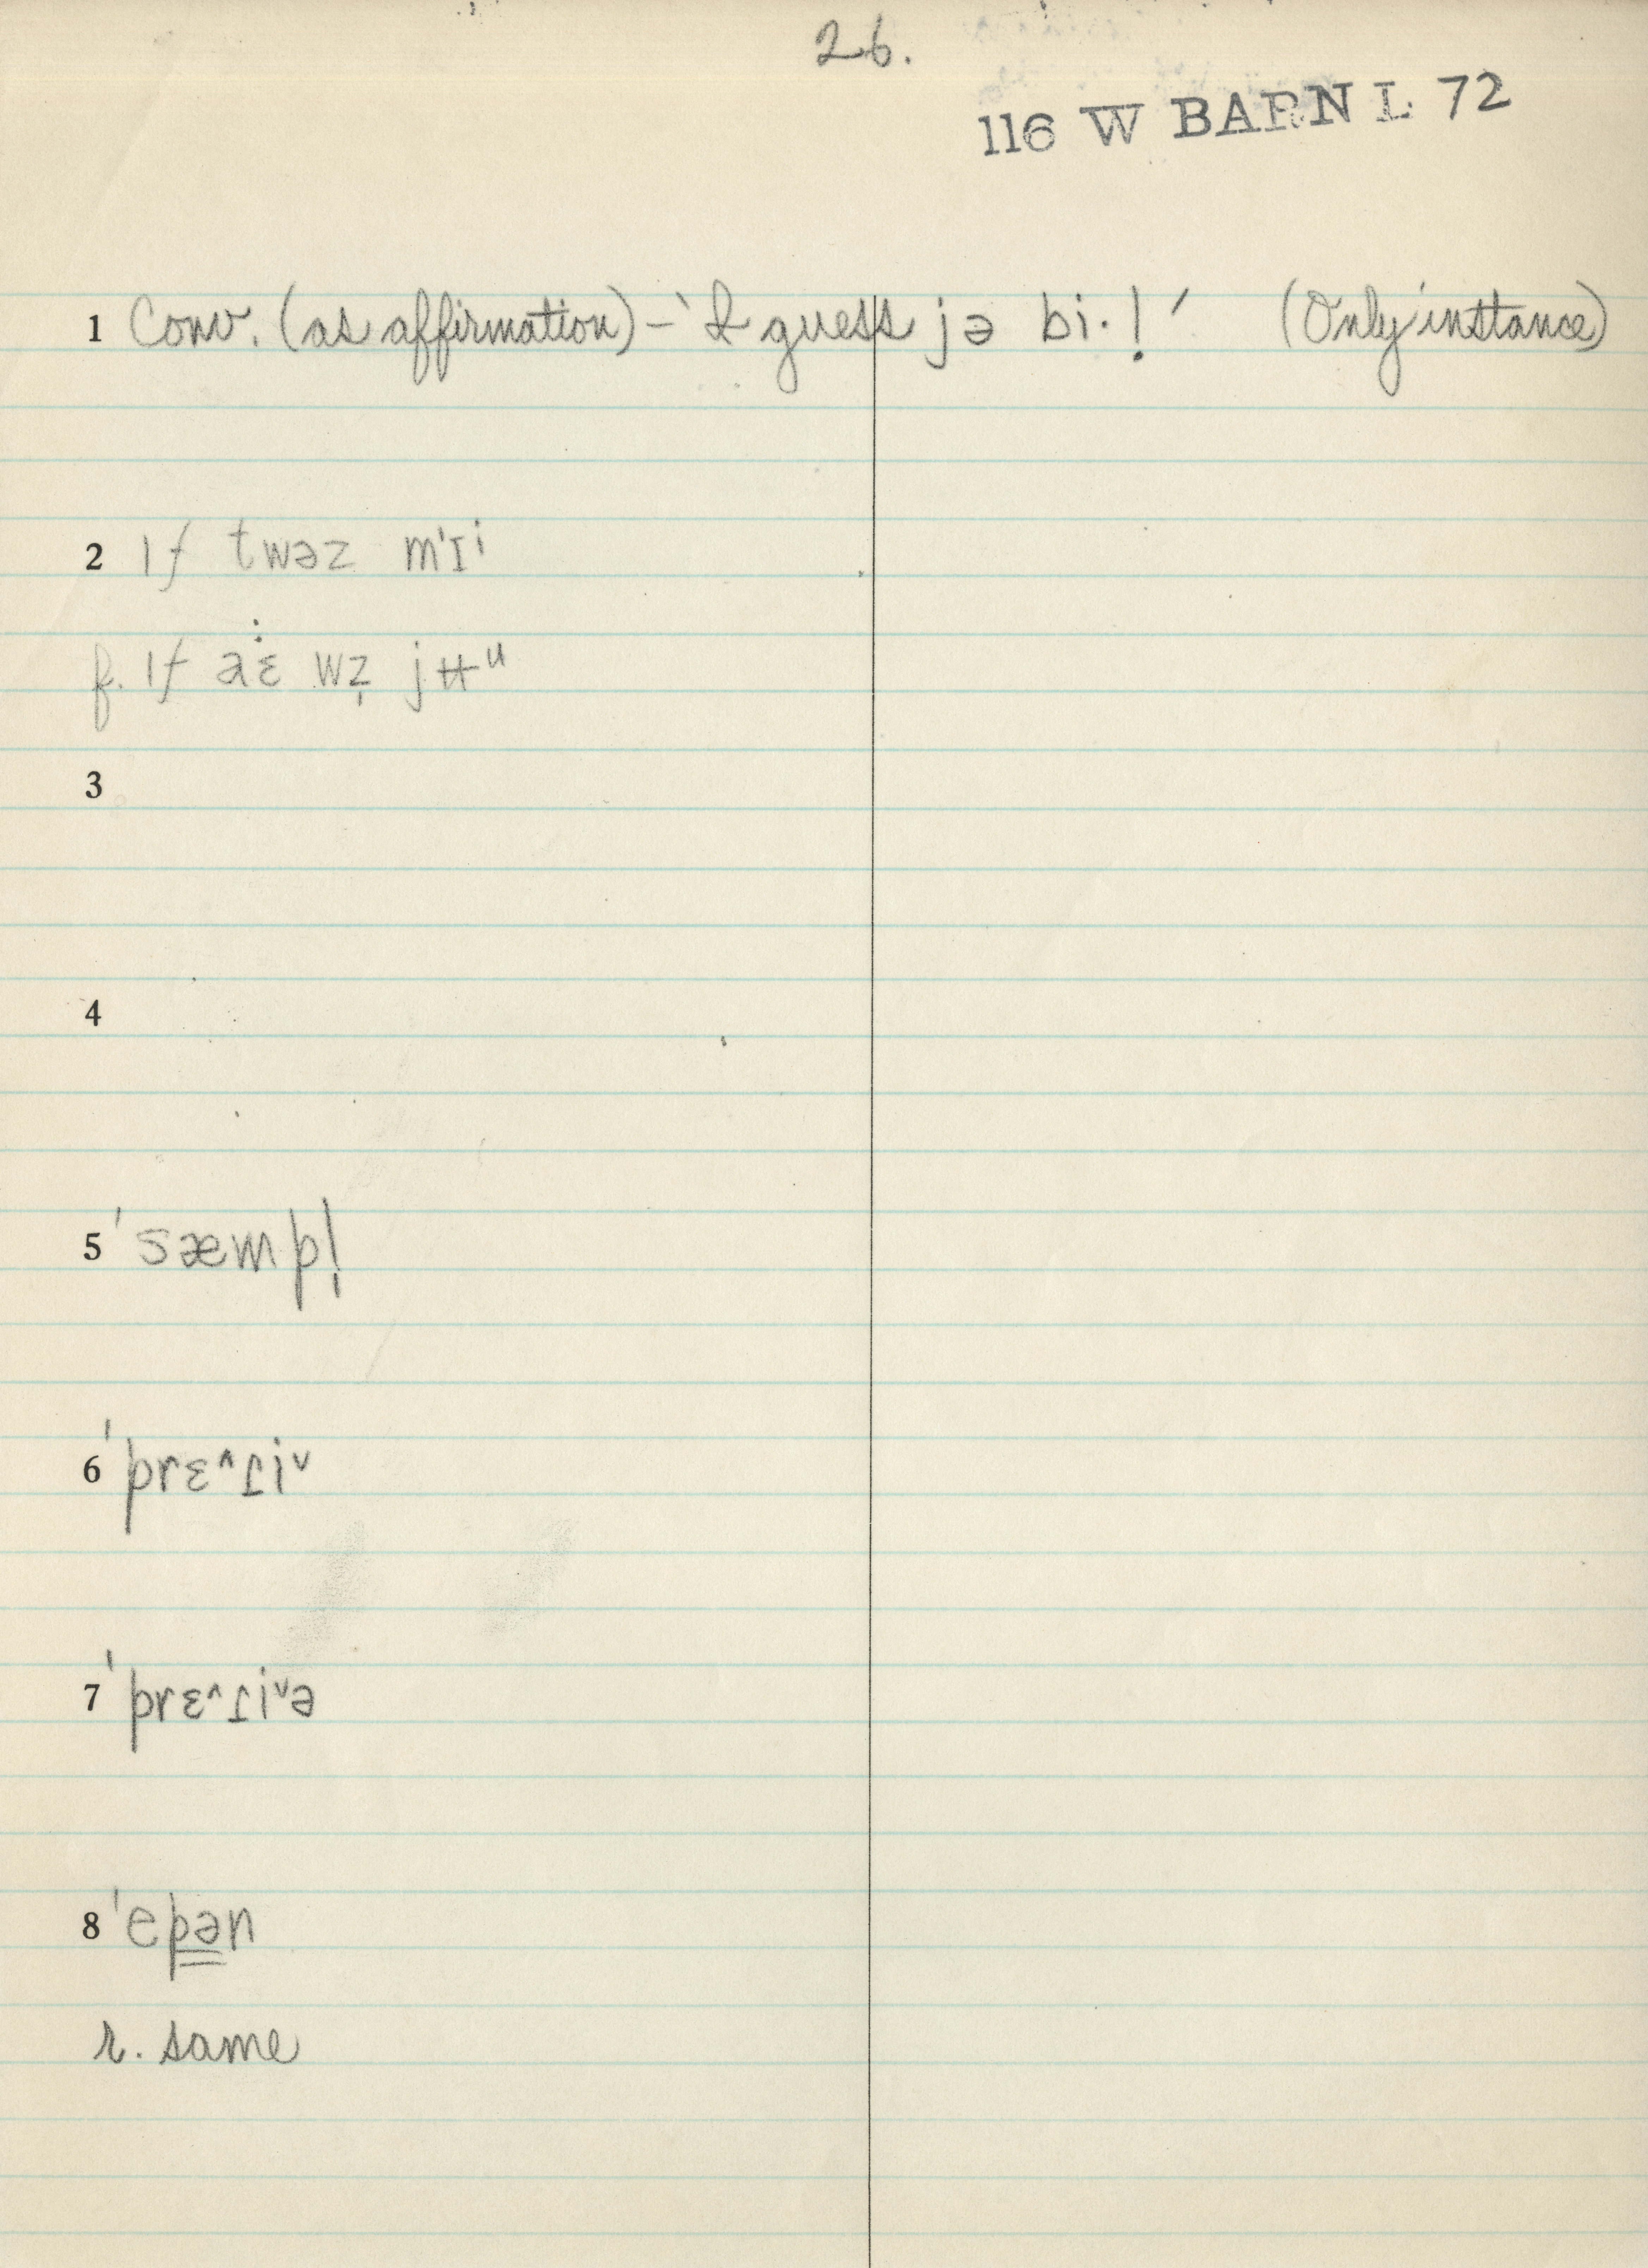 26.
116 W BARN L 72
1 Conv. (as affirmation) – 'I guess jə bi·!' (Only instance)
2 ɪf twəz mˈɪⁱ
f. ɪf aɛ̇ wz̩ jʉᵘ
3
4
5 ˈsæmpl̩
6 ˈprɛ^ɾɪiˇ
7 ˈprɛ^ɾɪiˇə
8 ˈepən
r. same